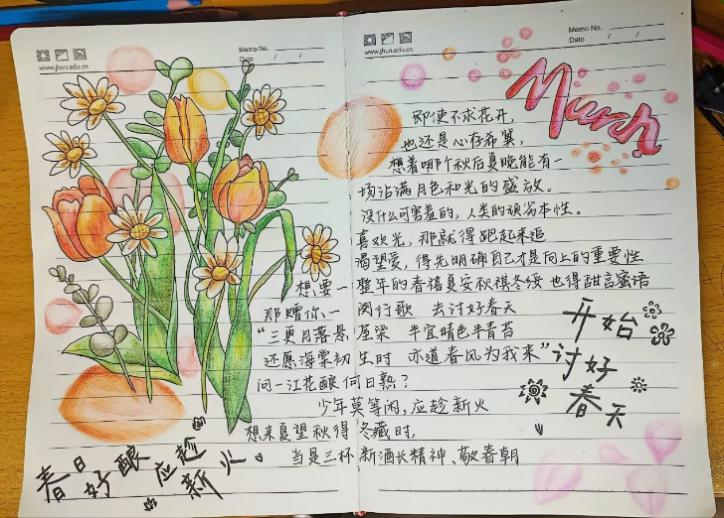 Memo No.
Date / /
www.jhun.edu.cn
Memo No.
Date / /
www.jhun.edu.cn
March
即使不求花开，
也还是心存希冀，
想着哪个秋后夏晚能有一
场沾满月色和光的盛放。
没什么可害羞的，人类的顽劣本性。
喜欢光，那就得跑起来追
渴望爱，得先明确自己才是向上的重要性
想要一整年的春禧夏安秋祺冬绥 也得甜言蜜语
那赠你一阕行歌 去讨好春天
“三更月落悬屋梁 半宜晴色半青苔
还愿海棠初生时 亦道春风为我来”
问一江花酿何日熟？
少年莫等闲，应趁新火
想来夏望秋得冬藏时，
当是三杯新酒长精神、敬春朝
开始
讨好
春天
春日
好酿
应趁
新火